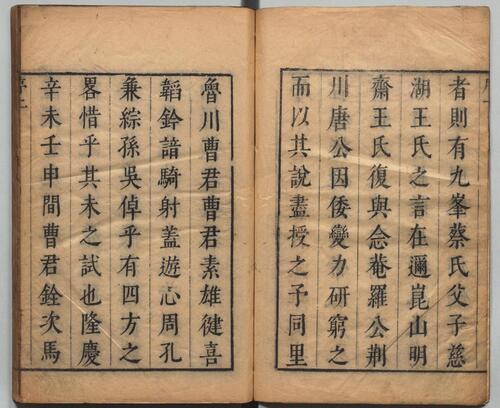 者則有九峯蔡氏父子慈
湖王氏之言在邇崑山明
齋王氏復與念菴羅公荆
川唐公因倭變力研窮之
而以其說盡授之予同里
魯川曹君曹君素雄健喜
韜鈐諳騎射蓋遊心周孔
兼綜孫吳倬乎有四方之
畧惜乎其未之試也隆慶
辛未壬申間曹君銓次馬